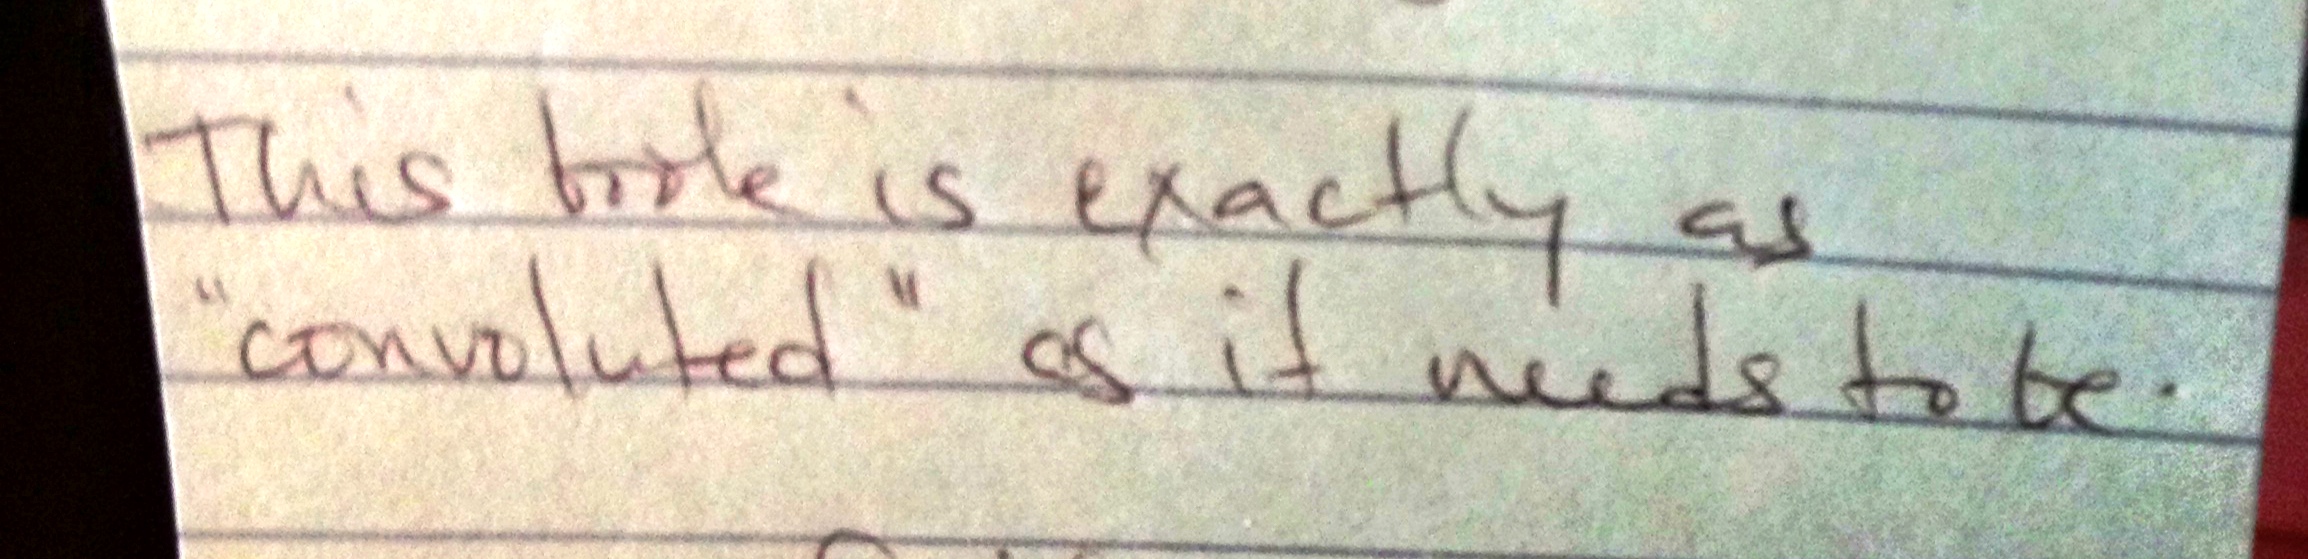 This book is exactly as
"convoluted" as it needs to be.